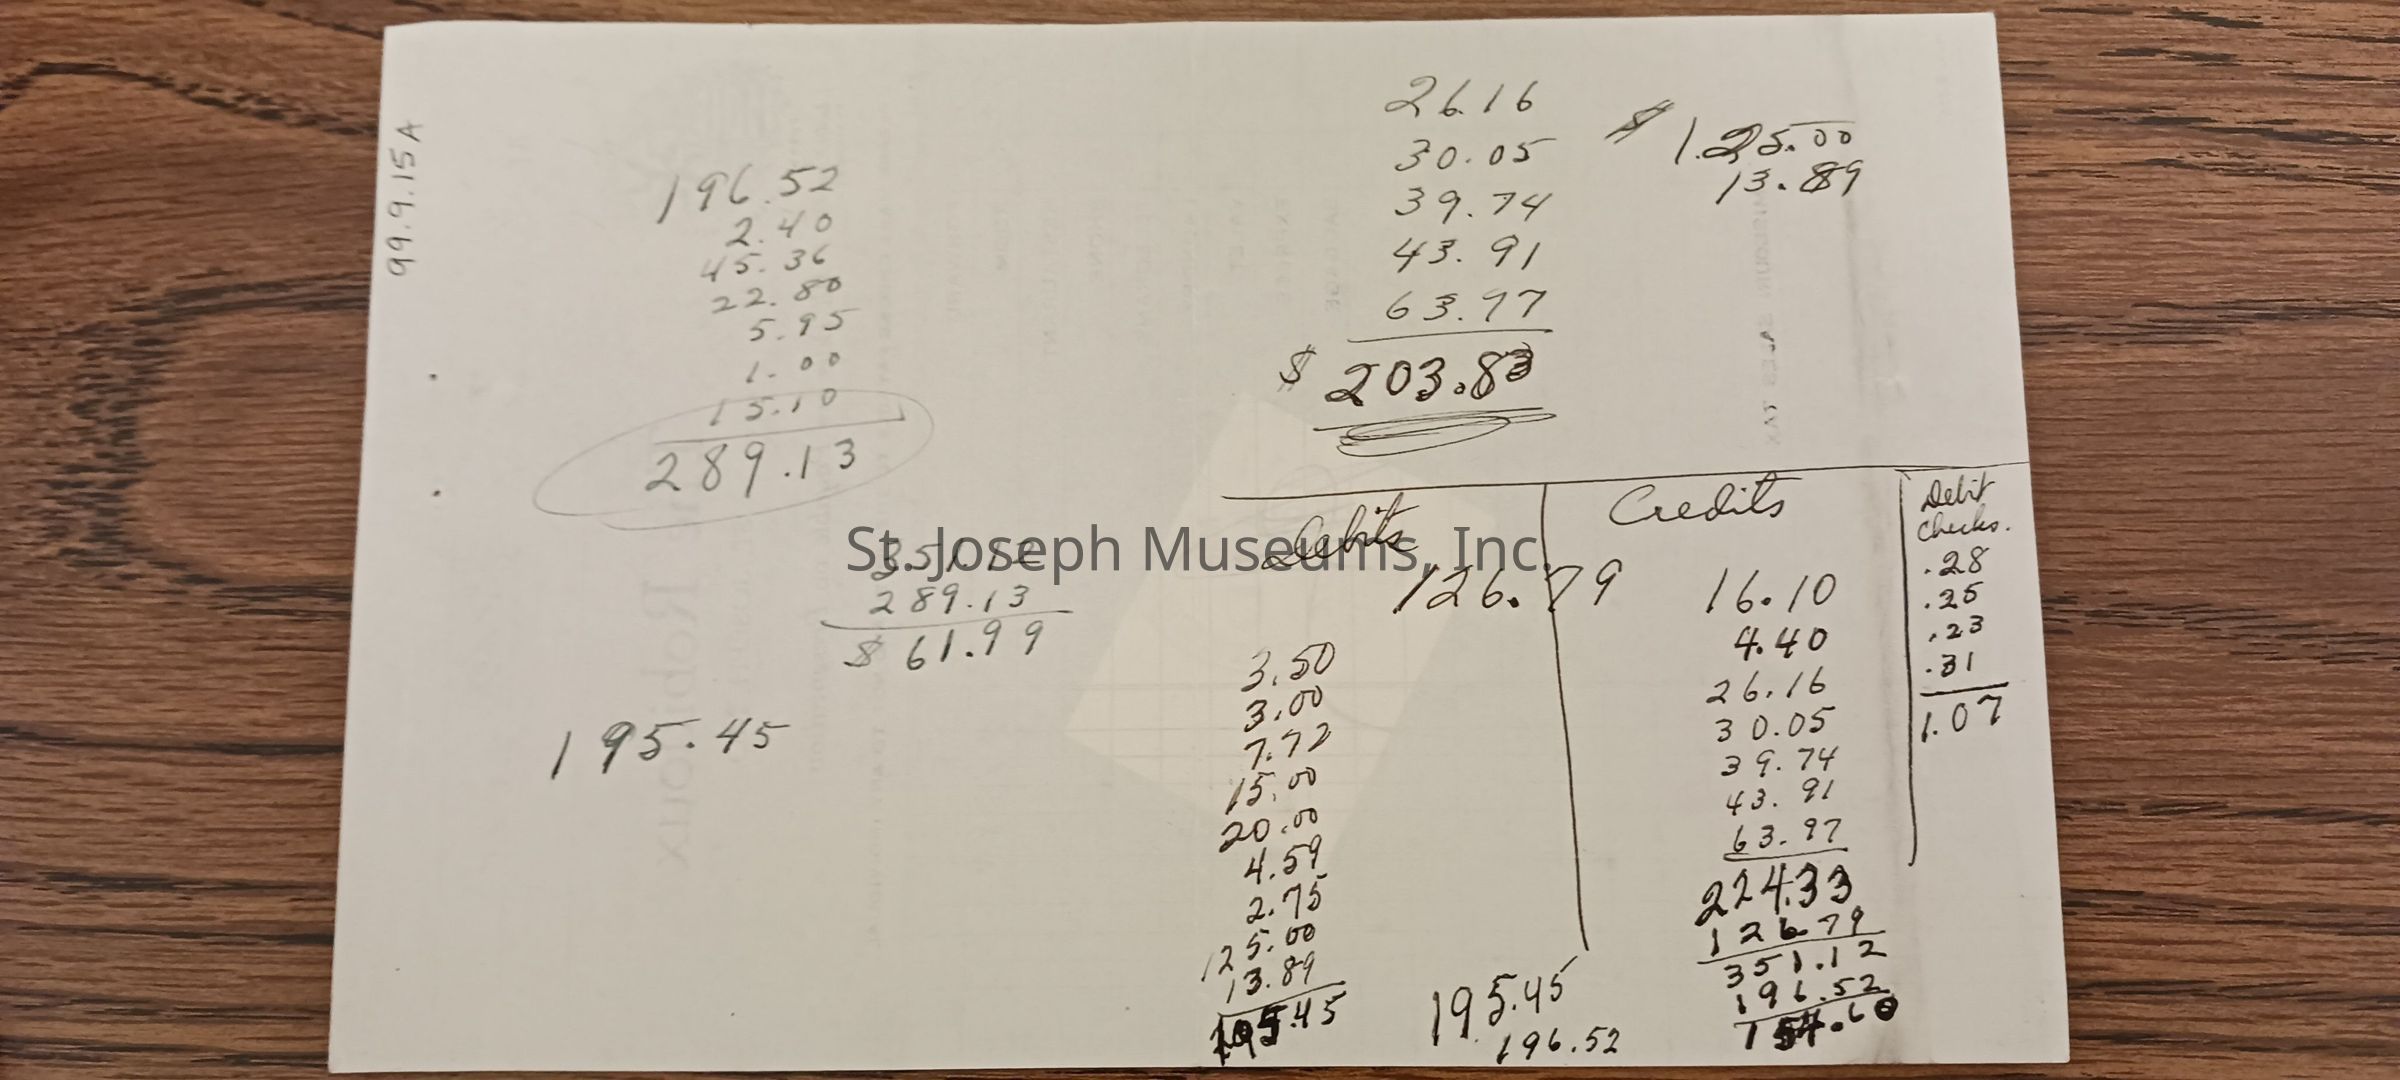 99.9.15A
196.52
2.40
45.36
22.80
5.95
1.00
15.10
289.13
351.12
289.13
$ 61.99
195.45
26.16
30.05
39.74
43.91
63.97
$ 203.83
$ 1.25.00
13.89
Debits
126.79
3.50
3.00
7.72
15.00
20.00
4.59
2.75
125.00
13.89
195.45
195.45
196.52
Credits
16.10
4.40
26.16
30.05
39.74
43.91
63.97
224.33
126.79
351.12
196.52
154.60
Debit
Checks.
.28
.25
.23
.31
1.07
St. Joseph Museums, Inc.
MISSOURI SALES TAX